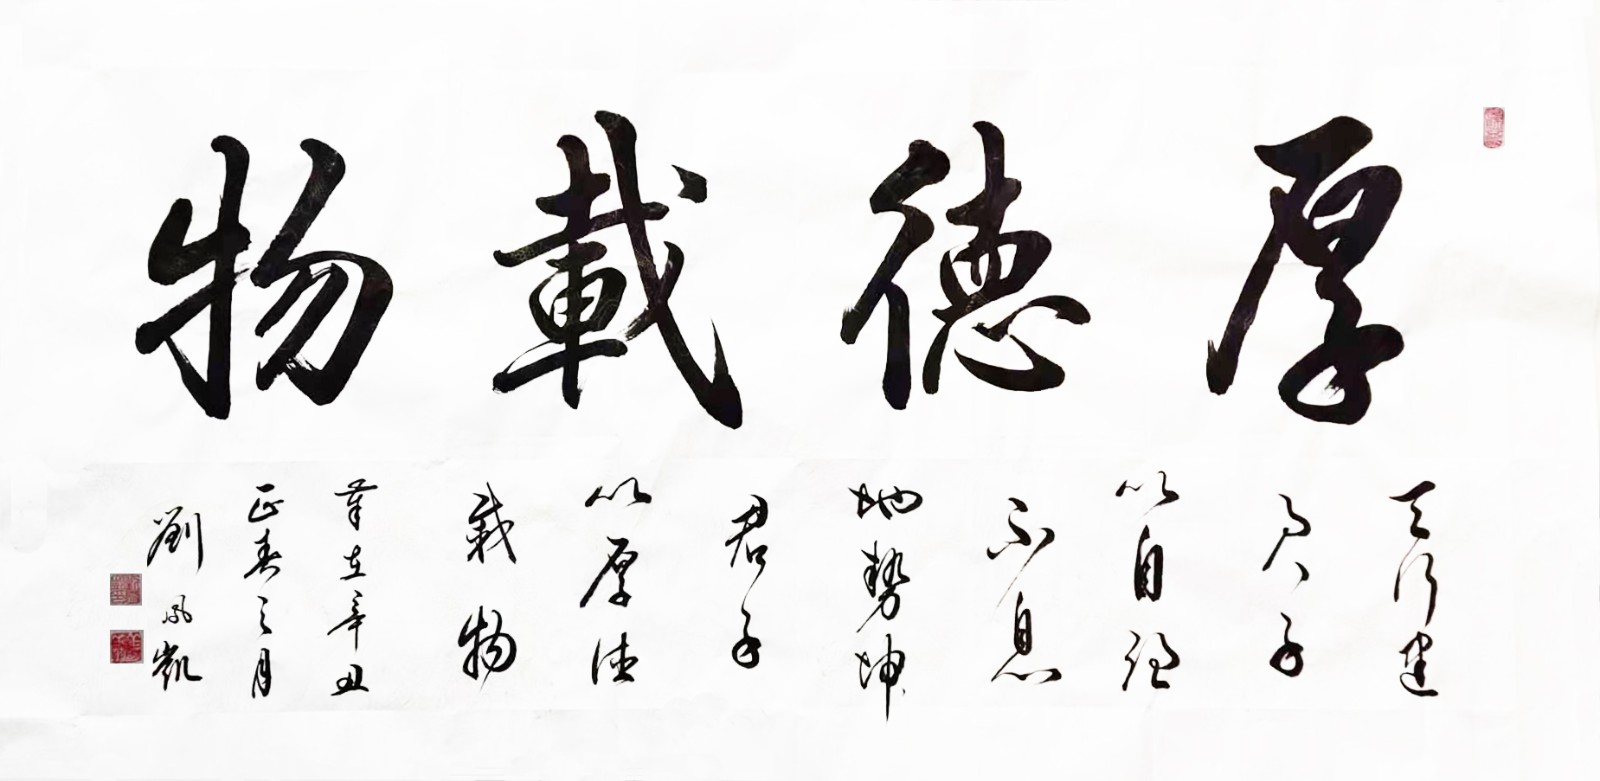 厚德載物
天行健
君子
以自強
不息
地勢坤
君子
以厚德
載物
在辛丑
正春之月
劉鳳凱